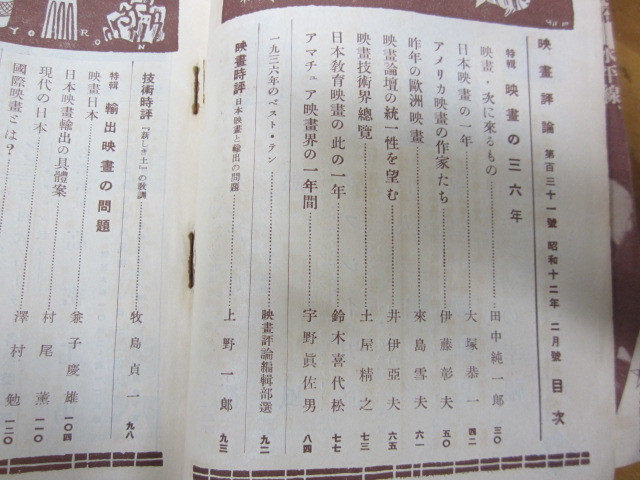 映畫評論 第百三十一號 昭和十二年 二月號 目次
特輯 映畫の三六年
映畫・次に來るもの 田中純一郎 三〇
日本映畫の一年 大塚恭一 四二
アメリカ映畫の作家たち 伊藤彰夫 五〇
昨年の歐洲映畫 來島雪夫 六一
映畫論壇の統一性を望む 井伊亞夫 六五
映畫技術界總覽 土屋精之 七三
日本敎育映畫の此の一年 鈴木喜代松 七七
アマチュア映畫界の一年間 宇野眞佐男 八四
一九三六年のベスト・テン 映畫評論編輯部選 九二
映畫時評 日本映畫と輸出の問題 上野一郎 九三
技術時評 『新しき土』の敎訓 牧島貞一 九八
特輯 輸出映畫の問題
映畫日本
日本映畫輸出の具體案 兼子慶雄 一〇四
現代の日本 村尾薰 一一〇
國際映畫とは? 澤村勉 一二〇
YORON